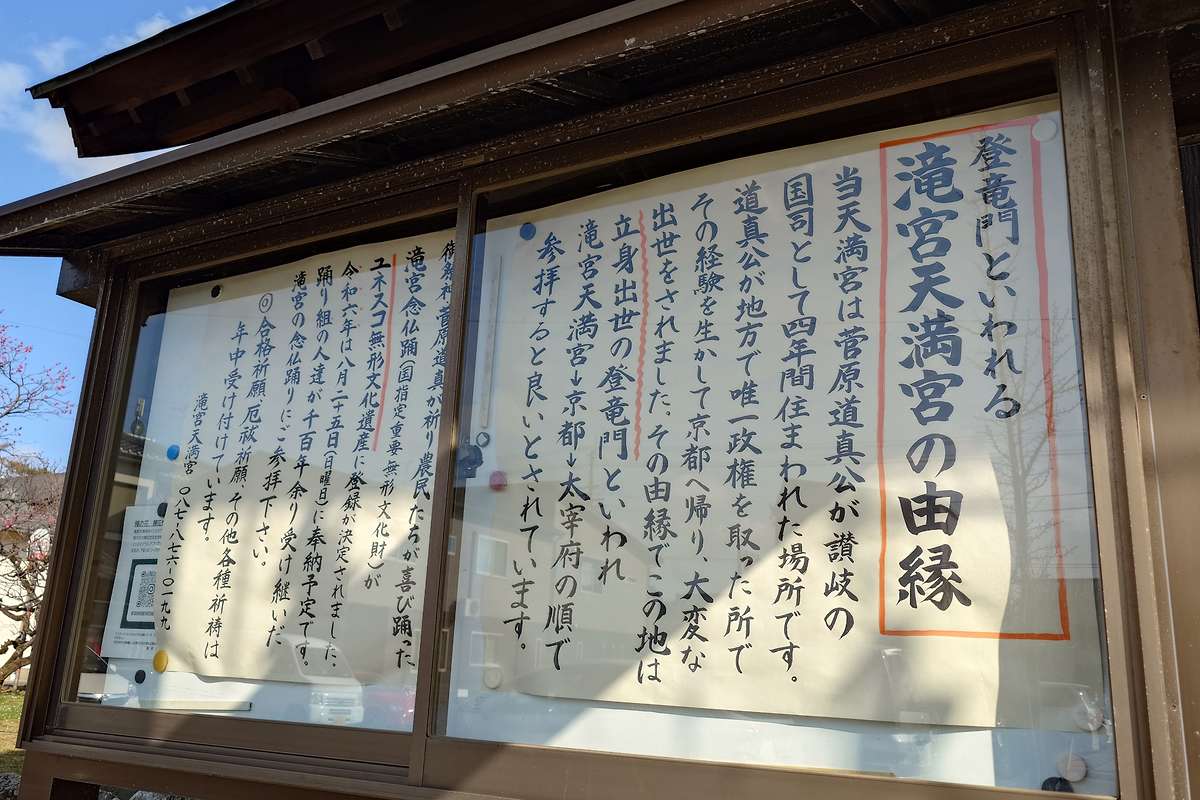 登竜門といわれる
滝宮天満宮の由縁
当天満宮は菅原道真公が讃岐の
国司として四年間住まわれた場所です。
道真公が地方で唯一政権を取った所で
その経験を生かして京都へ帰り、大変な
出世をされました。その由縁でこの地は
立身出世の登竜門といわれ
滝宮天満宮→京都→太宰府の順で
参拝すると良いとされています。
御祭神菅原道真が祈り農民たちが喜び踊った
滝宮念仏踊(国指定重要無形文化財)が
ユネスコ無形文化遺産に登録が決定されました、
令和六年は八月二十五日(日曜日)に奉納予定です。
踊り組の人達が千百年余り受け継いだ
滝宮の念仏踊りにご参拝下さい。
◎合格祈願、厄祓祈願、その他各種祈祷は
年中受け付けています。
滝宮天満宮 〇八七-八七六-〇一九九